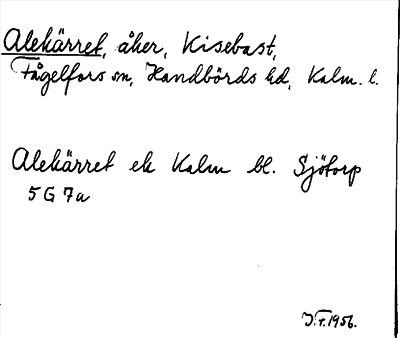 Alekärret, åker, Kisebast,
Fågelfors sn, Handbörds hd, Kalm. l.
Alekärret ek Kalm bl. Sjötorp
5 G 7a
J.F. 1956.